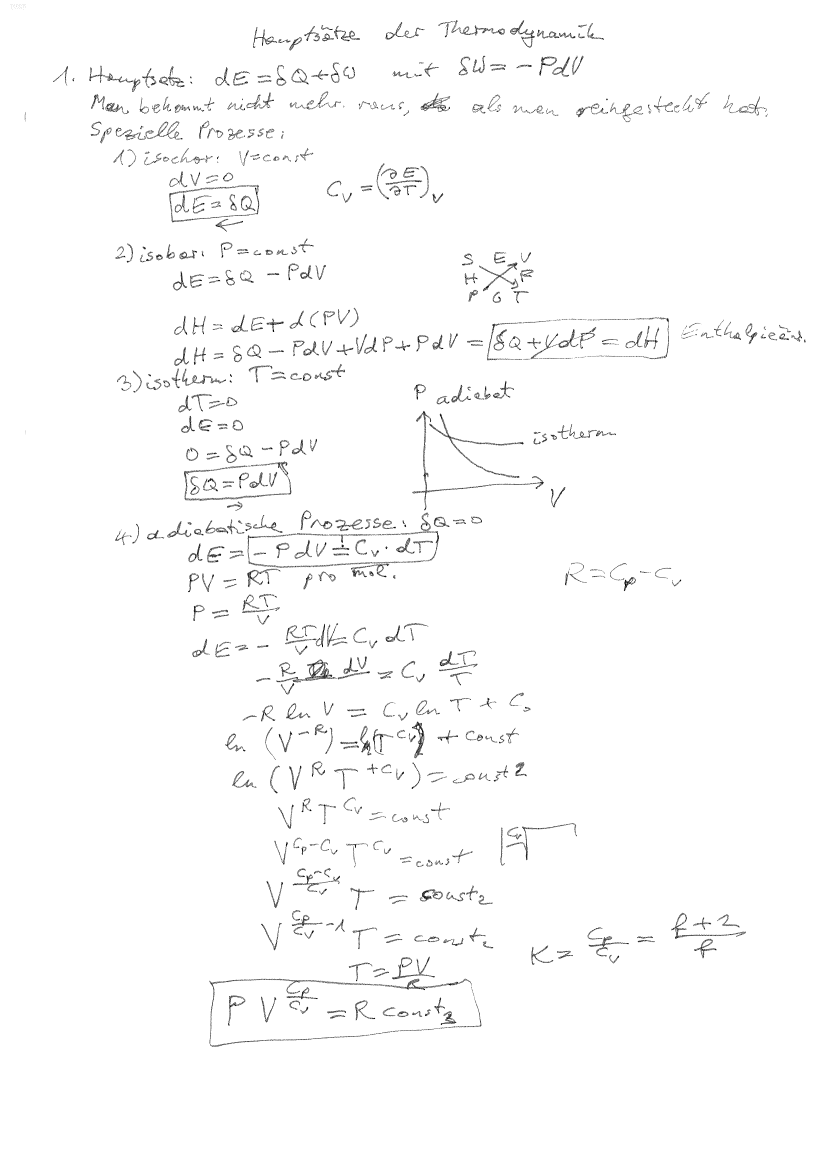 Hauptsätze der Thermodynamik
1. Hauptsatz: dE = δQ + δW mit δW = - PdV
Man bekommt nicht mehr raus, als man reingesteckt hat.
Spezielle Prozesse:
1) isochor: V = const
dV = 0
C_V = (∂E/∂T)_V
dE = δQ
←
2) isobar: P = const
dE = δQ - PdV
S E V
H F
P G T
dH = dE + d(PV)
dH = δQ - PdV + VdP + PdV = δQ + VdP = dH Enthalpieän.
3) isotherm: T = const
dT = 0
dE = 0
0 = δQ - PdV
δQ = PdV
→
P adiabat
isotherm
V
4) adiabatische Prozesse: δQ = 0
dE = - P dV != C_V · dT
PV = RT pro mol.
R = C_p - C_V
P = RT/V
dE = - RT/V dV = C_V dT
- R/V dV = C_V dT/T
-R ln V = C_V ln T + C_0
ln (V^-R) = ln(T^C_V) + const
ln (V^R T^+C_V) = const2
V^R T^C_V = const
V^(C_p-C_V) T^C_V = const
C_V
V^((C_p-C_V)/C_V) T = const_2
V^(C_p/C_V - 1) T = const_2
K = C_p/C_V = (f+2)/f
T = PV/R
P V^(C_p/C_V) = R const_3